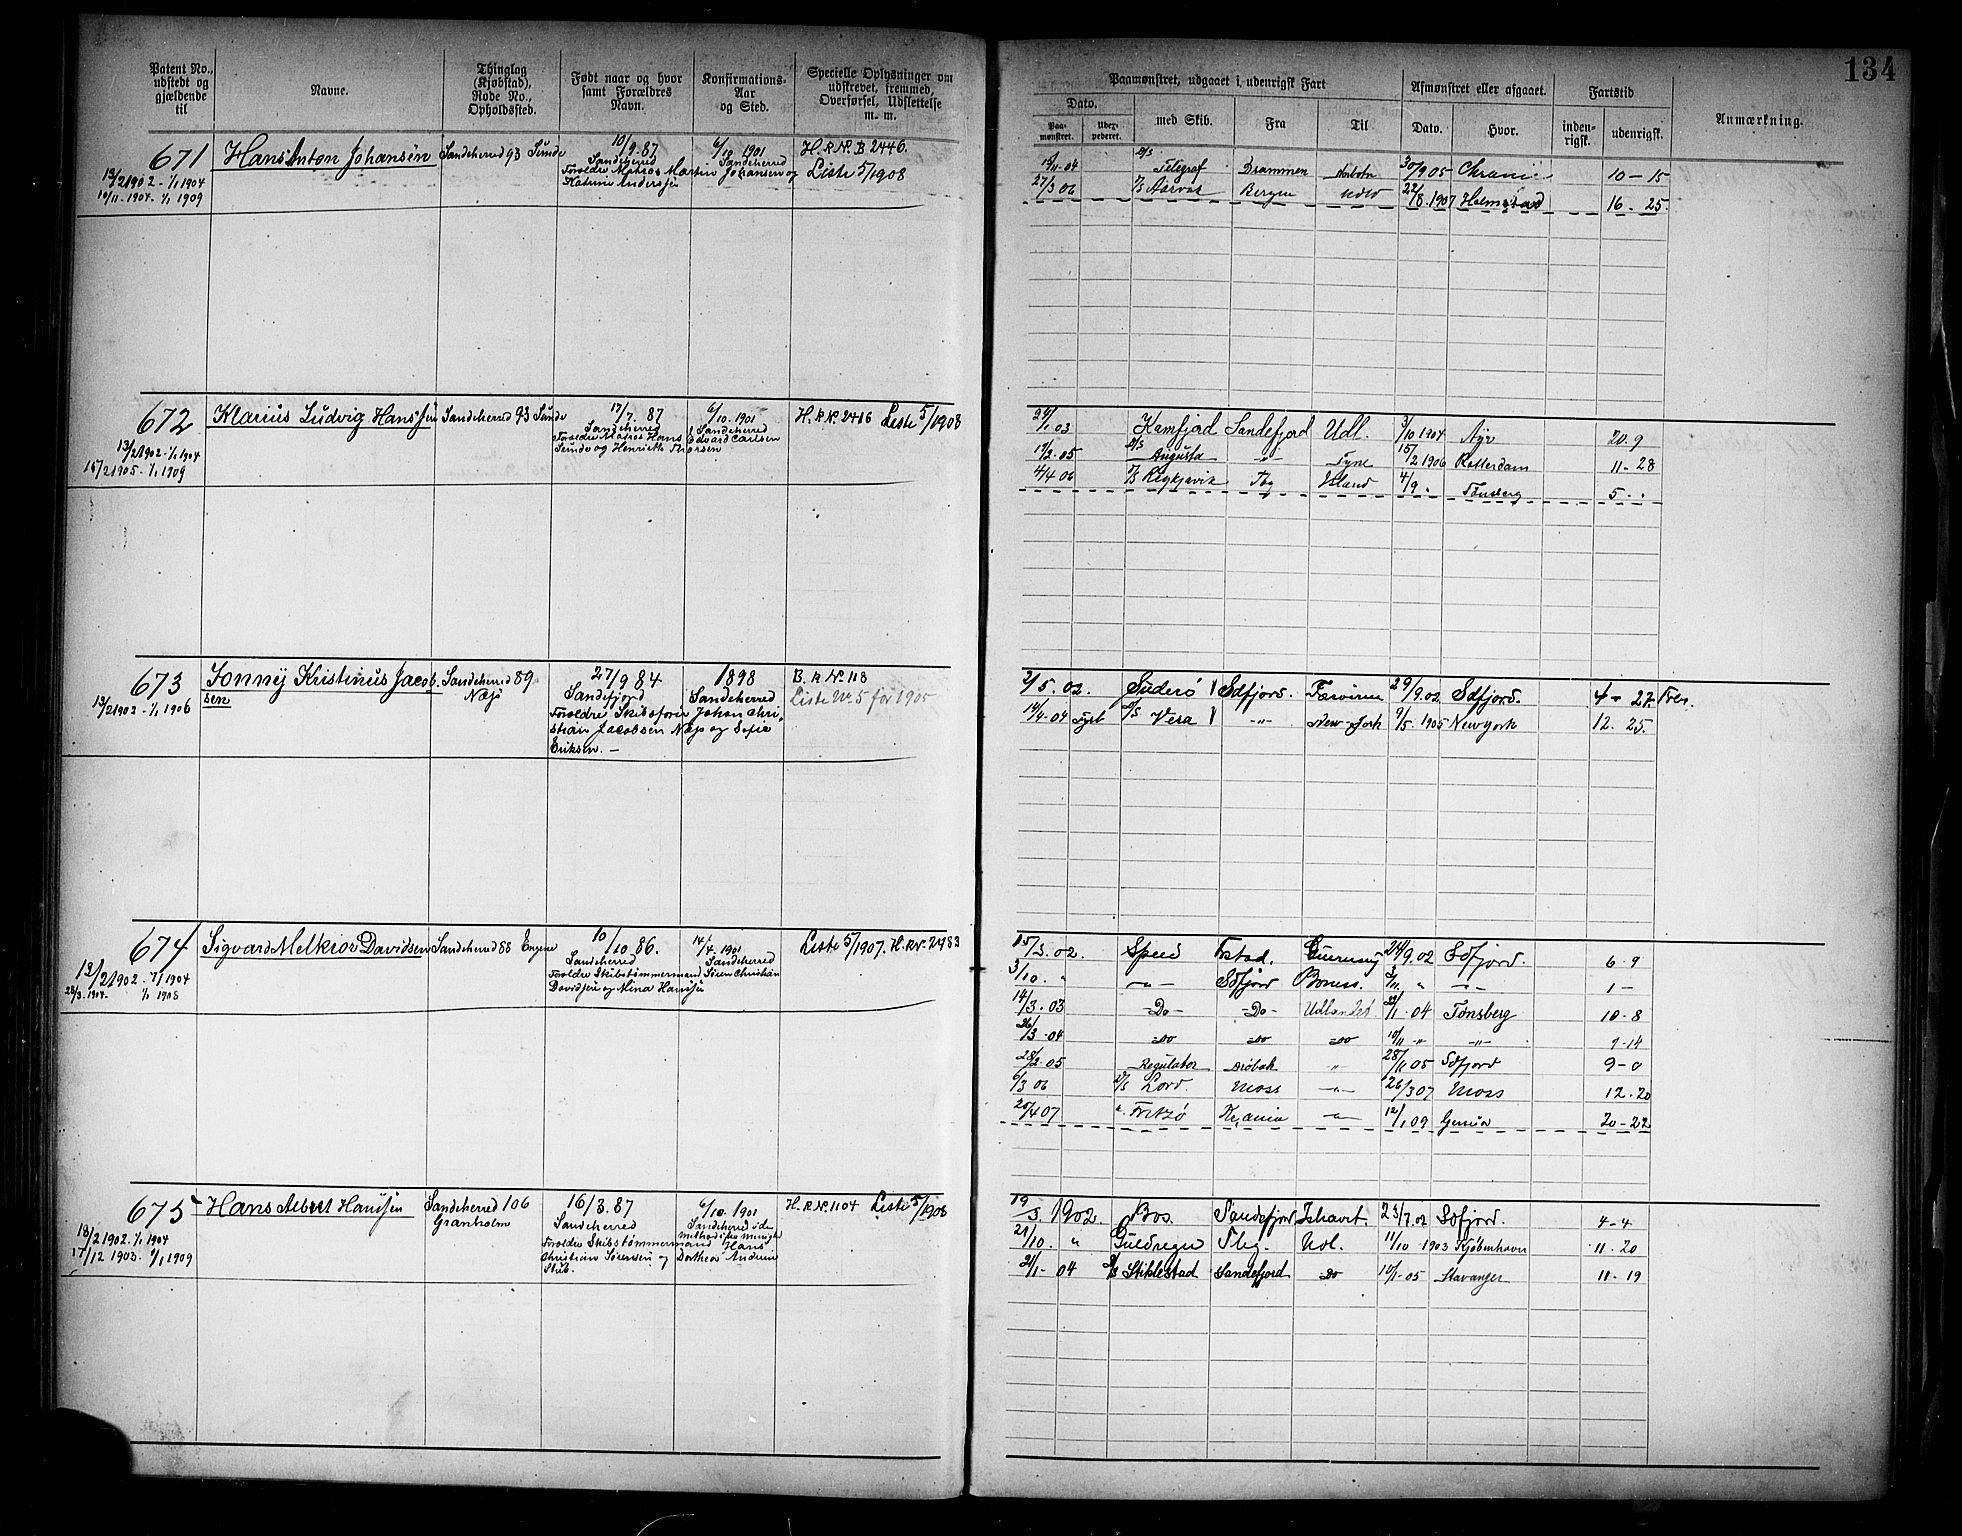 134
Patent No., udstedt og gjældende til
Navne.
Thinglag (Kjøbstad), Rode No., Opholdssted.
Født naar og hvor samt Forældres Navn.
Konfirmations-Aar og Sted.
Specielle Oplysninger om udskrevet, fremmed, Overførsel, Udslettelse m. m.
Paamønstret, udgaaet i udenrigsk Fart
Dato.
Paa-mønstret.
Udex-pederet.
med Skib.
Fra
Til
Afmønstret eller afgaaet.
Dato.
Hvor.
Fartstid
inden-rigsk.
udenrigsk.
Anmærkning.
671 Hans Anton Johansen Sandeherred 93 Sunde 10/9-87 6/10 1901 H.R.Nr. B 2446.
Sandeherred Sandeherred
Forældre Matros Martin Johansen og Liste 5/1908
Katrine Andersen
13/2 1902 - 1/1 1904
10/11-1904. 1/1 1909
11-04 D/S Telegraf Drammen 30/9 05 Chrania 10-15
27/3 06 Bergen Udld 22/8 1907 Halmstad 16-25
672 Klarius Ludvig Hanssen Sandeherred 93 Sunde 17/7. 87 6/10. 1901 H.R.N. 2486 Liste 5/1908
Sandeherred Sandeherred
Forældre Matros Hans Edvard Carlsen
Sunde og Henriette Thorsen
13/2 1902-1/1 1904
15/2 1905-1/1 1909
24/1 03 Kamfjord Sandefjord Udl. 3/10 1904 Ayr 20.9
17/2-05 D/S Augusta -"- Tyne 15/2 1906 Rotterdam 11-28
4/4 06 D/S Reykjavik Tbg Island 4/9 " Tønsberg 5 - "
673 Jonny Kristinus Jacobsen Sandeherred 89 Næs 27/9 84 1898 B. R. N. 118
Sandefjord Sandeherred Liste No. 5 for 1905
Forældre Skibsfører Johan Chri-
stian Jacobsen Næs og Sofie
Eriksen.-
13/2 1902 - 1/1 1906
2/5. 02. Suderø Sdfjord. Færøerne 29/9.02 Sdfjord. 4-27
14/4-04 D/S Vera -"- New-York 9/5 1905 Newyork 12. 25.
674 Sigvard Melkior Davidsen Sandeherred 88 10/10 86. 14/4. 1901 Liste 5/1907. H.R.N. 2483
Sandeherred Sandeherred
Forældre Skibstømmermand Søren Christian
Davidsen og Mina Hanssen
13/2 1902. 1/1 1904
28/3.1904. 1/1 1908
15/3.02. Speed Guernsey 24/9.02 Sdfjord. 6-9
3/10. " -"- Sdfjord Boness. 3/11. " -"- 1-
14/3-03 -Do- -Do- Udlandet 22/1-04 Tønsberg 10-8
26/3-04 -Do -Do -Do 10/11 -"- -"- 9-14
28/2-05 Regulator Drøbak -"- 28/11 05 Sdfjord 9-0
6/3 06 D/S Lord Moss -"- 26/3 07 Moss 12-20
20/4 07 " Fritzø -"- 12/1 09 Genua 20-22
675 Hans Albert Hanssen Sandeherred 106 Granholm 16/3.87 6/10. 1901 H.R.N. 1104 Liste 5/1908
Sandeherred Sandeherred i den methodistiske Menighed
Forældre Skibstømmermand Hans
Christian Sørensen og Dorthea Andrine
Stub.
13/2 1902. 1/1 1904
17/12 1903. 1/1 1909
19/3. 1902. Bos. Sandefjord Ishavet. 23/7.02 Sdfjord. 4-4
21/10. " Guldregn Udl. 11/10 1903 Kjøbenhavn 11-20
21/1-04 D/S Stiklestad Sandefjord Do 10/1-05 Stavanger 11-19